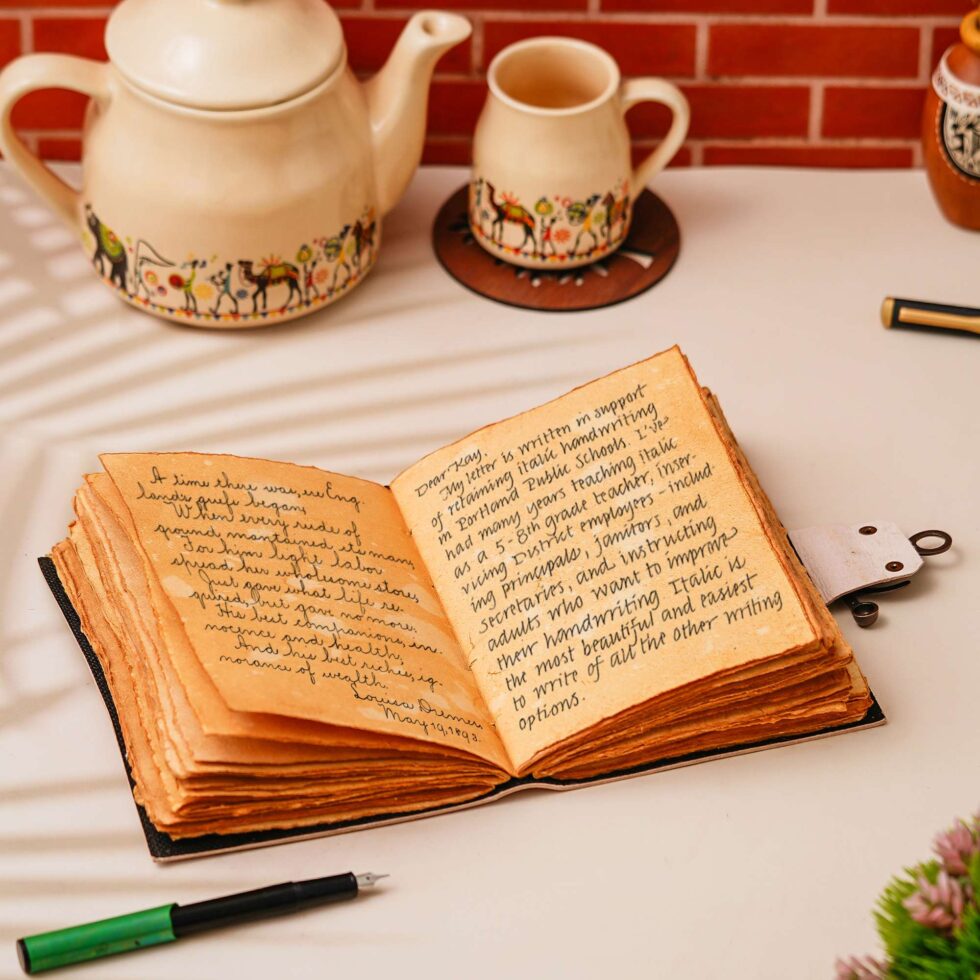 A time there was, ere Eng
lands griefs began,
When every rude of
ground maintained its man,
For him light labor
spread her wholesome store,
Just gave what life re-
quired but gave no more,
His best companions, in-
nocence and health,
And his best riches, ig-
norance of wealth.
Louisa Diemer
May 19, 1893.
Dear Kay,
My letter is written in support
of retaining italic handwriting
in Portland Public Schools. I've
had many years teaching italic
as a 5-8th grade teacher, inser-
vicing District employees - includ-
ing principals, janitors, and
secretaries, and instructing
adults who want to improve
their handwriting Italic is
the most beautiful and easiest
to write of all the other writing
options.